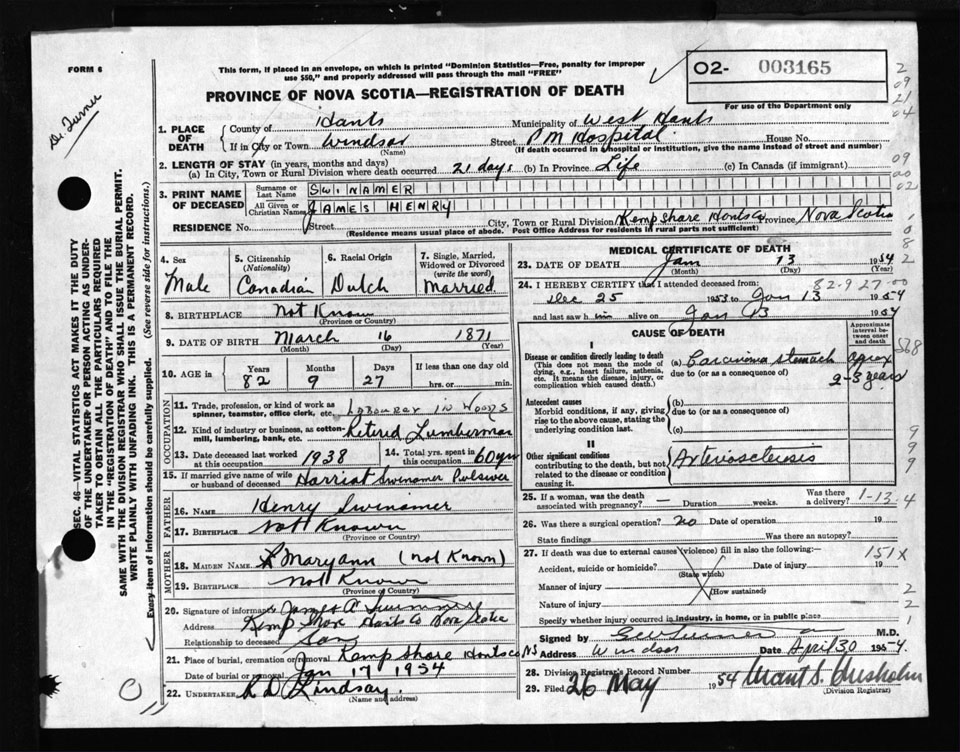 FORM 6
This form, if placed in an envelope, on which is printed "Dominion Statistics—Free, penalty for improper
use $50," and properly addressed will pass through the mail "FREE"
02- 003165
For use of the Department only
PROVINCE OF NOVA SCOTIA—REGISTRATION OF DEATH
Dr Turner
1. PLACE OF DEATH
County of Hants Municipality of West Hants
If in City or Town Windsor Street P M Hospital House No.
(Name) (If death occurred in hospital or institution, give the name instead of street and number)
2. LENGTH OF STAY (in years, months and days)
(a) In City, Town or Rural Division where death occurred 21 days (b) In Province Life (c) In Canada (if immigrant)
3. PRINT NAME OF DECEASED
Surname or Last Name SWINAMER
All Given or Christian Names JAMES HENRY
RESIDENCE No. Street City, Town or Rural Division Kempshore Hants Co Province Nova Scotia
(Residence means usual place of abode. Post Office Address for residents in rural parts not sufficient)
4. Sex Male
5. Citizenship (Nationality) Canadian
6. Racial Origin Dutch
7. Single, Married, Widowed or Divorced (write the word) Married
8. BIRTHPLACE Not Known
(Province or Country)
9. DATE OF BIRTH March 16 1871
(Month) (Day) (Year)
10. AGE in Years 82 Months 9 Days 27 If less than one day old hrs. or min.
OCCUPATION
11. Trade, profession, or kind of work as spinner, teamster, office clerk, etc. Labourer in Woods
12. Kind of industry or business, as cotton-mill, lumbering, bank, etc. Retired Lumberman
13. Date deceased last worked at this occupation 1938
14. Total yrs. spent in this occupation 60 yrs
15. If married give name of wife or husband of deceased Harriat Swinamer Pulsiver
FATHER
16. NAME Henry Swinamer
17. BIRTHPLACE Not Known
(Province or Country)
MOTHER
18. MAIDEN NAME Maryann (not Known)
19. BIRTHPLACE Not Known
(Province or Country)
20. Signature of informant James A Swinamer
Address Kemp Shore Hants Co Nova Scotia
Relationship to deceased Son
21. Place of burial, cremation or removal Kempshore Hants Co NS
Date of burial or removal Jan 17 1954
22. UNDERTAKER R D Lindsay.
(Name and address)
MEDICAL CERTIFICATE OF DEATH
23. DATE OF DEATH Jan 13 1954
(Month) (Day) (Year)
82-9 27-00
24. I HEREBY CERTIFY that I attended deceased from
Dec 25 1953 to Jan 13 1954
and last saw him alive on Jan 13 1954
CAUSE OF DEATH
Approximate interval between onset and death
I
Disease or condition directly leading to death
(This does not mean the mode of dying, e.g., heart failure, asthenia, etc. It means the disease, injury, or complication which caused death.)
(a) Carcinoma stomach approx 2-3 years
due to (or as a consequence of)
Antecedent causes
Morbid conditions, if any, giving rise to the above cause, stating the underlying condition last.
(b)
due to (or as a consequence of)
(c)
II
Other significant conditions
contributing to the death, but not related to the disease or condition causing it.
Arteriosclerosis
25. If a woman, was the death associated with pregnancy? — Duration weeks. Was there a delivery?
1-13-4
26. Was there a surgical operation? no Date of operation 19
State findings Was there an autopsy?
27. If death was due to external causes (violence) fill in also the following:—
151X
Accident, suicide or homicide? Date of injury 19
(State which)
Manner of injury
(How sustained)
Nature of injury
Specify whether injury occurred in industry, in home, or in public place
Signed by G W Turner M.D.
Address Windsor Date April 30 1954.
28. Division Registrar's Record Number
29. Filed 26 May 1954 Grant S. Chisholm
(Division Registrar)
SEC. 46—VITAL STATISTICS ACT MAKES IT THE DUTY
OF THE UNDERTAKER OR PERSON ACTING AS UNDER-
TAKER TO OBTAIN ALL THE PARTICULARS REQUIRED
IN THE "REGISTRATION OF DEATH" AND TO FILE THE
SAME WITH THE DIVISION REGISTRAR WHO SHALL ISSUE THE BURIAL PERMIT.
WRITE PLAINLY WITH UNFADING INK. THIS IS A PERMANENT RECORD.
Every item of information should be carefully supplied. (See reverse side for instructions.)